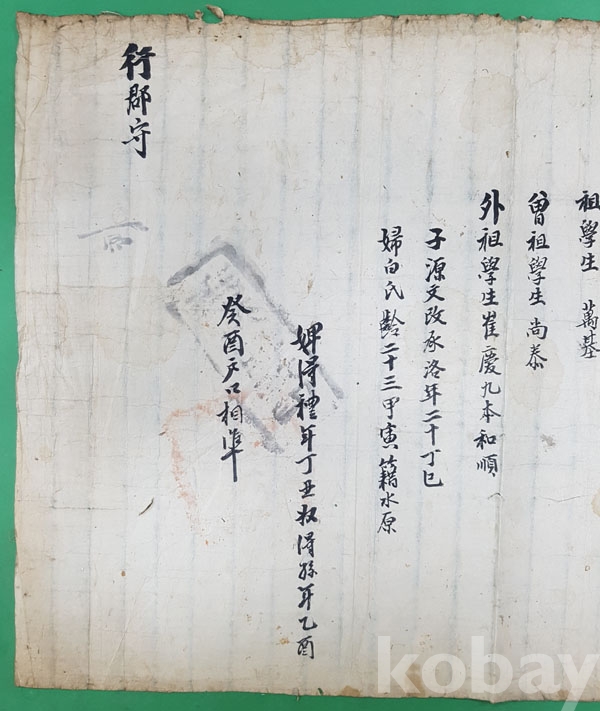 祖學生 萬基
曾祖學生 尙泰
外祖學生崔慶九本和順
子源文改承洛年二十丁巳
婦白氏齡二十三甲寅籍水原
婢得禮年丁丑奴得孫年乙酉
癸酉戶口相準
行郡守
kobay